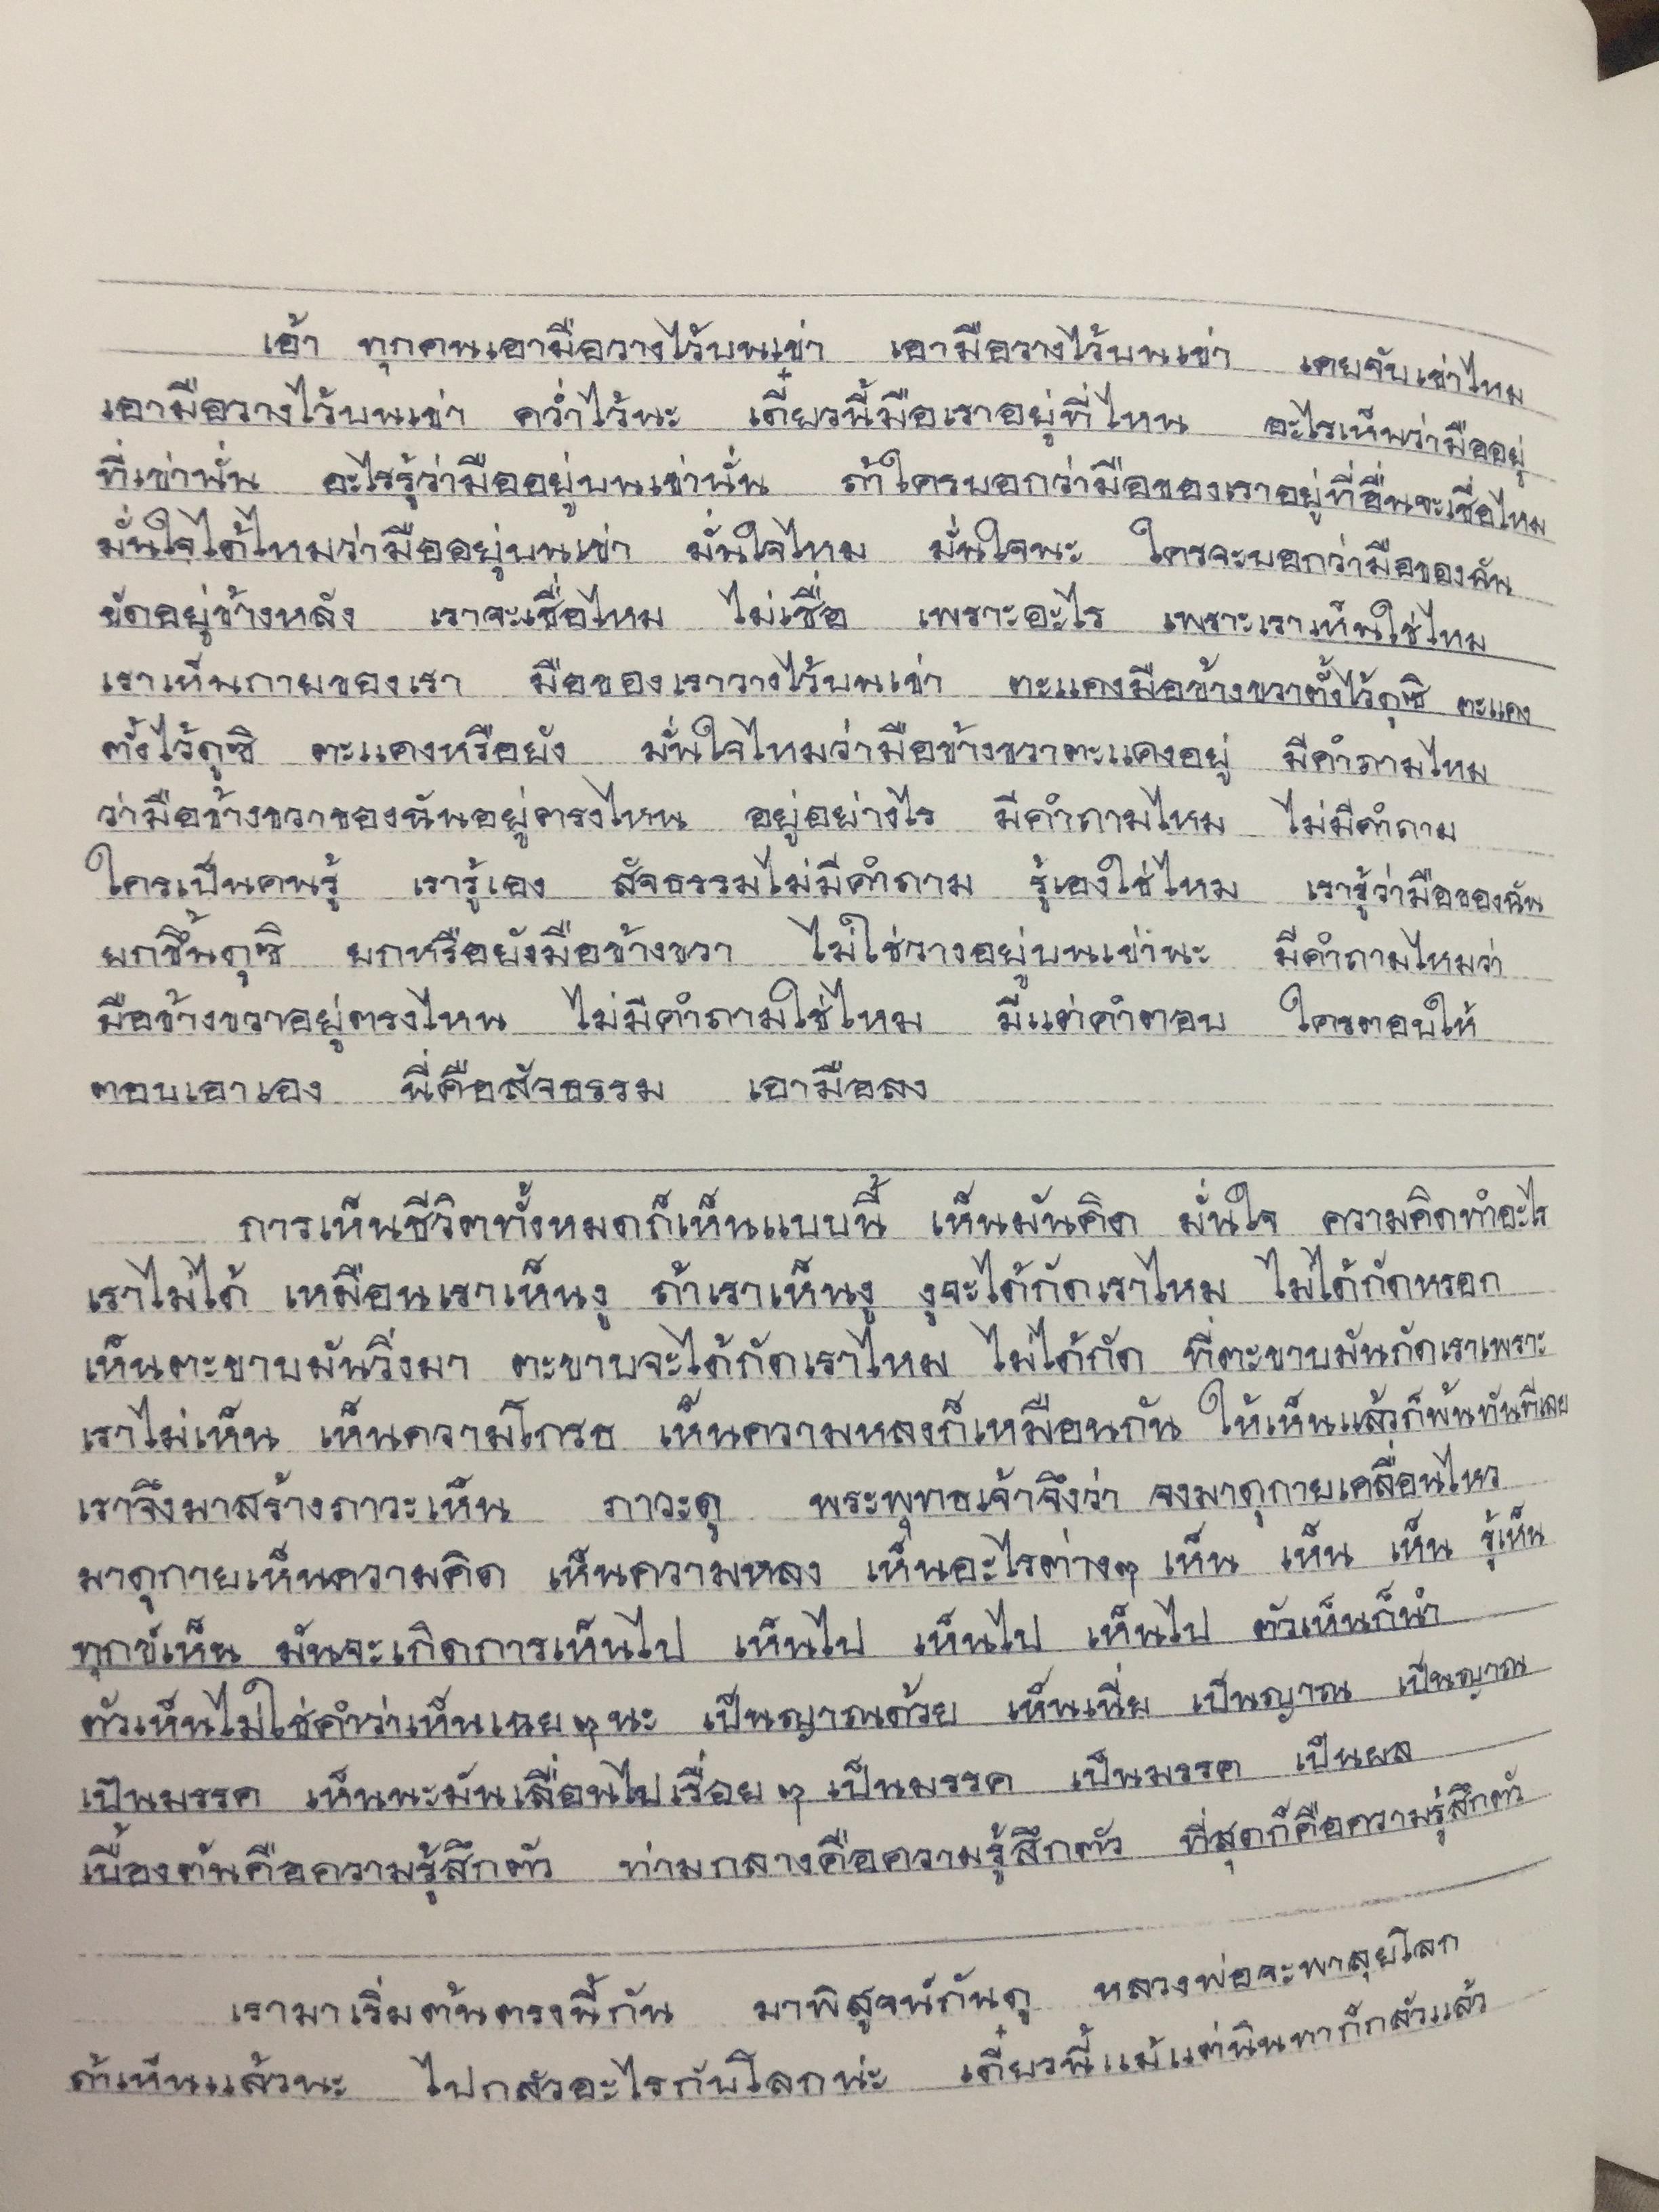 เอ้า ทุกคนเอามือวางไว้บนเข่า เอามือวางไว้บนเข่า เคยจับเข่าไหม
เอามือวางไว้บนเข่า คว่ำไว้นะ เดี๋ยวนี้มือเราอยู่ที่ไหน อะไรเห็นว่ามืออยู่
ที่เข่านั่น อะไรรู้ว่ามืออยู่บนเข่านั่น ถ้าใครบอกว่ามือของเราอยู่ที่อื่นจะเชื่อไหม
มั่นใจได้ไหมว่ามืออยู่บนเข่า มั่นใจไหม มั่นใจนะ ใครจะบอกว่ามือของฉัน
ขัดอยู่ข้างหลัง เราจะเชื่อไหม ไม่เชื่อ เพราะอะไร เพราะเราเห็นใช่ไหม
เราเห็นกายของเรา มือของเราวางไว้บนเข่า ตะแคงมือข้างขวาตั้งไว้ดูซิ ตะแคง
ตั้งไว้ดูซิ ตะแคงหรือยัง มั่นใจไหมว่ามือข้างขวาตะแคงอยู่ มีคำถามไหม
ว่ามือข้างขวาของฉันอยู่ตรงไหน อยู่อย่างไร มีคำถามไหม ไม่มีคำถาม
ใครเป็นคนรู้ เรารู้เอง สัจธรรมไม่มีคำถาม รู้เองใช่ไหม เรารู้ว่ามือของฉัน
ยกขึ้นดูซิ ยกหรือยังมือข้างขวา ไม่ใช่วางอยู่บนเข่านะ มีคำถามไหมว่า
มือข้างขวาอยู่ตรงไหน ไม่มีคำถามใช่ไหม มีแต่คำตอบ ใครตอบให้
ตอบเอาเอง นี่คือสัจธรรม เอามือลง
การเห็นชีวิตทั้งหมดก็เห็นแบบนี้ เห็นมันคิด มั่นใจ ความคิดทำอะไร
เราไม่ได้ เหมือนเราเห็นงู ถ้าเราเห็นงู งูจะได้กัดเราไหม ไม่ได้กัดหรอก
เห็นตะขาบมันวิ่งมา ตะขาบจะได้กัดเราไหม ไม่ได้กัด ที่ตะขาบมันกัดเราเพราะ
เราไม่เห็น เห็นความโกรธ เห็นความหลงก็เหมือนกัน ให้เห็นแล้วก็พ้นทันทีเลย
เราจึงมาสร้างภาวะเห็น ภาวะดู พระพุทธเจ้าจึงว่า จงมาดูกายเคลื่อนไหว
มาดูกายเห็นความคิด เห็นความหลง เห็นอะไรต่างๆ เห็น เห็น เห็น รู้เห็น
ทุกข์เห็น มันจะเกิดการเห็นไป เห็นไป เห็นไป เห็นไป ตัวเห็นก็นำ
ตัวเห็นไม่ใช่คำว่าเห็นเฉยๆนะ เป็นญาณด้วย เห็นเนี่ย เป็นญาณ เป็นญาณ
เป็นมรรค เห็นนะมันเลื่อนไปเรื่อยๆ เป็นมรรค เป็นมรรค เป็นผล
เบื้องต้นคือความรู้สึกตัว ท่ามกลางคือความรู้สึกตัว ที่สุดก็คือความรู้สึกตัว
เรามาเริ่มต้นตรงนี้กัน มาพิสูจน์กันดู หลวงพ่อจะพาลุยโลก
ถ้าเห็นแล้วนะ ไปกลัวอะไรกับโลกน่ะ เดี๋ยวนี้แม้แต่นินทาก็กลัวแล้ว